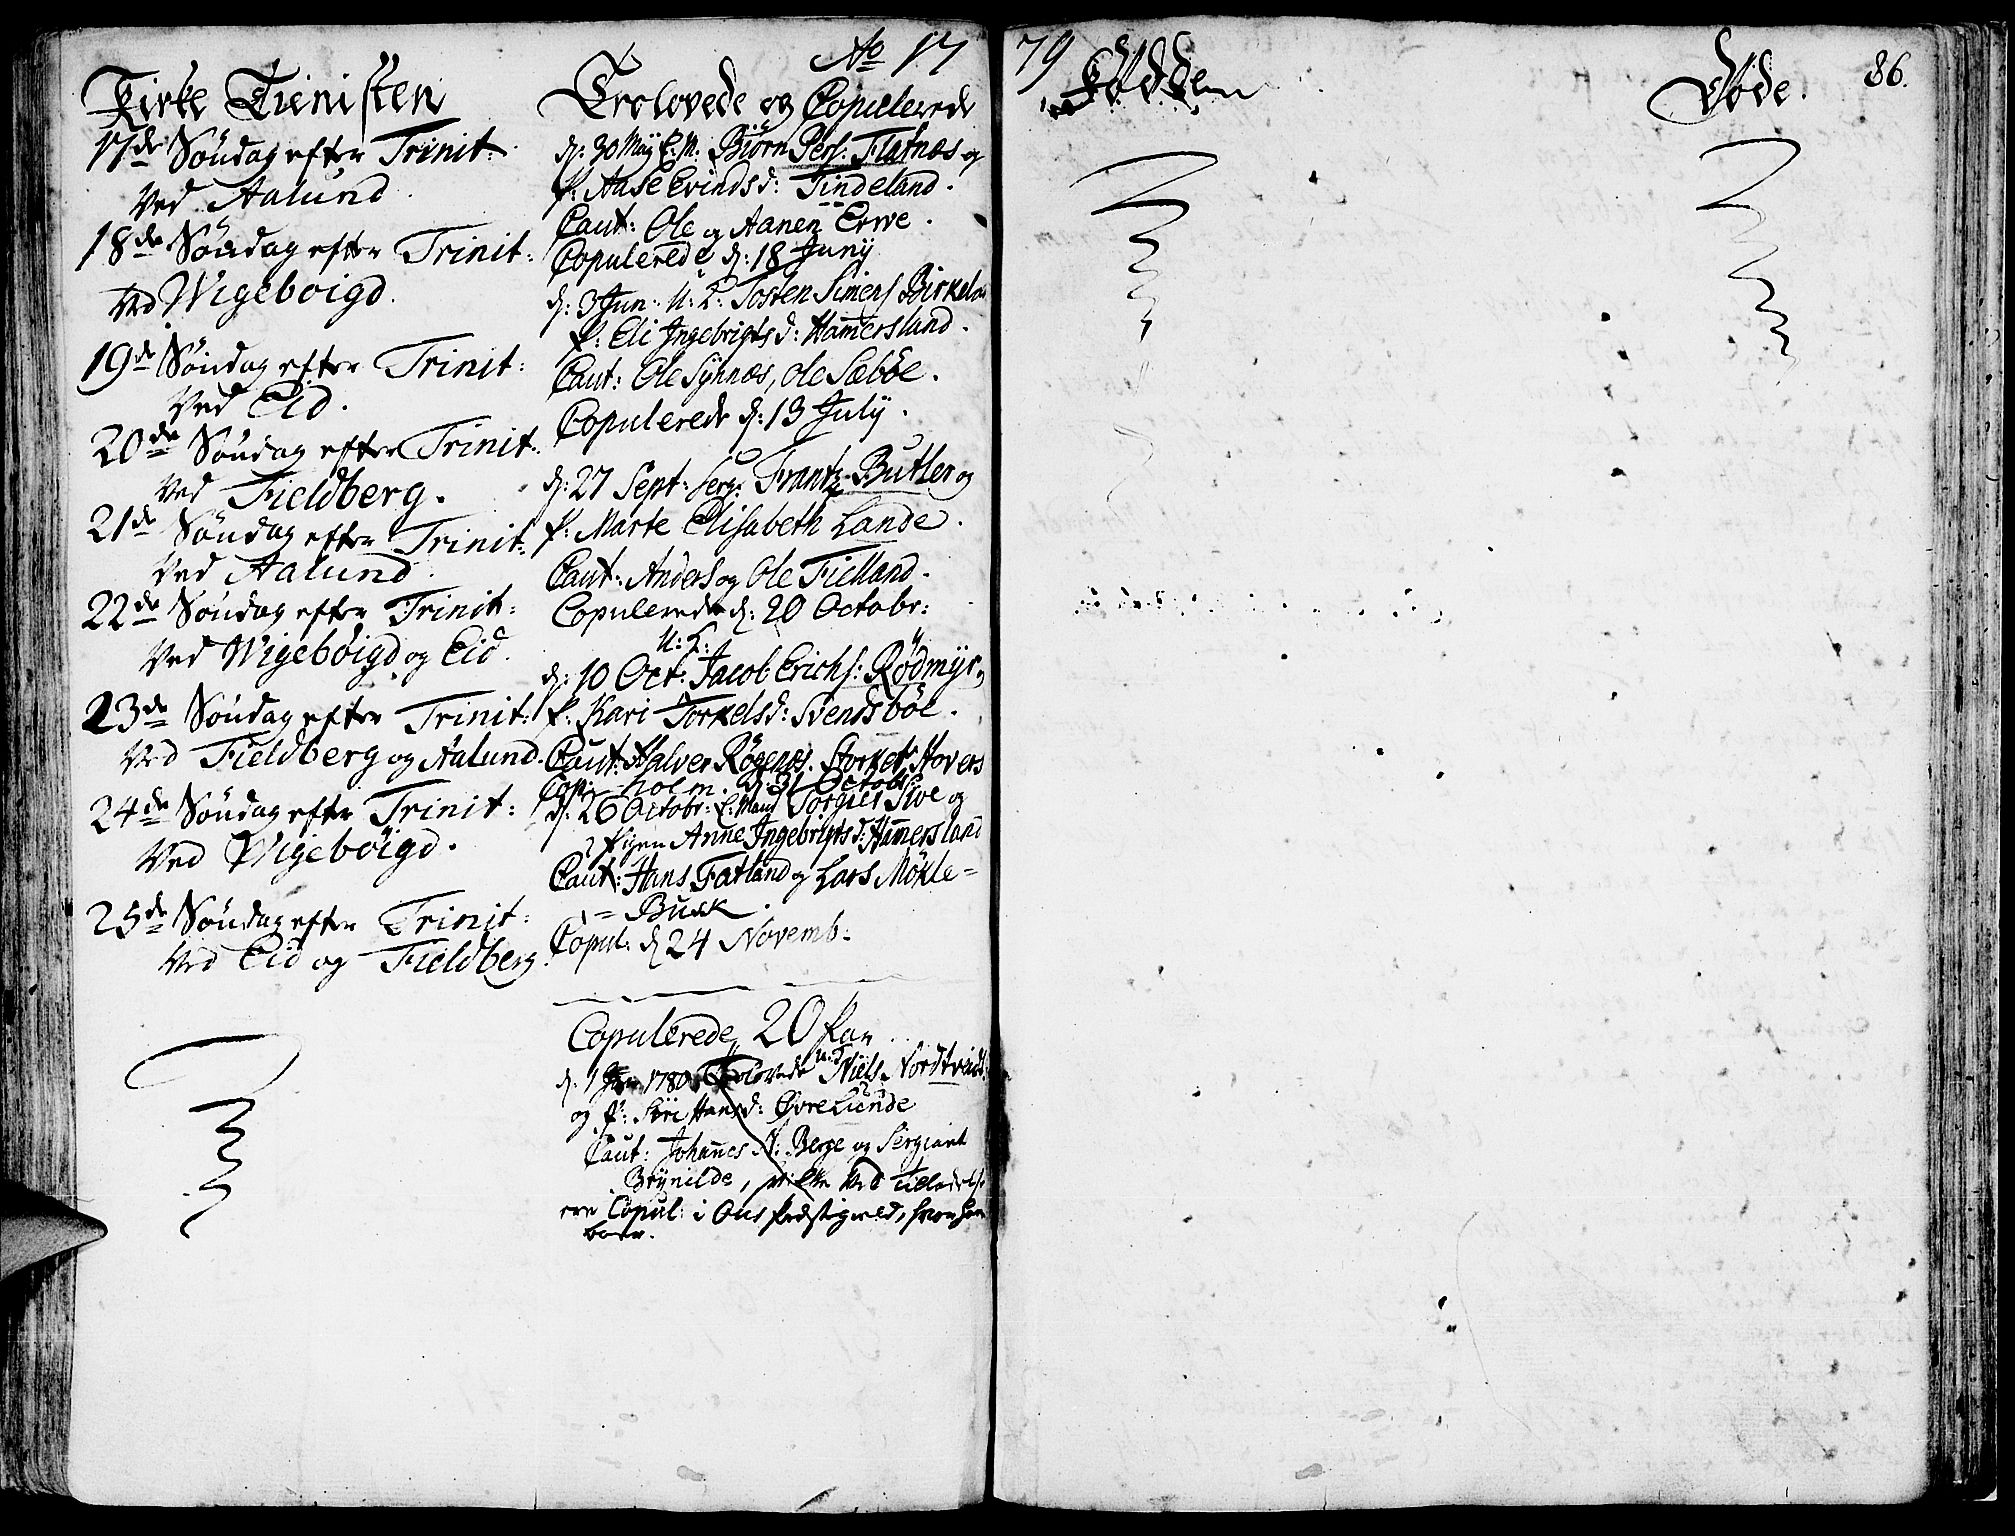 No 17
79
86.
Kirke Tienisten
17de Søndag efter Trinit:
Ved Aalund.
18de Søndag efter Trinit:
Ved Wigebøigd.
19de Søndag efter Trinit:
Ved Eid.
20de Søndag efter Trinit:
Ved Fieldberg.
21de Søndag efter Trinit:
Ved Aalund.
22de Søndag efter Trinit:
Ved Wigebøigd og Eid.
23de Søndag efter Trinit:
Ved Fieldberg og Aalund.
24de Søndag efter Trinit:
Ved Wigebøigd.
25de Søndag efter Trinit:
Ved Eid og Fieldberg.
Trolovede og Copulerede
d: 30 May E.M. Biørn Pers: Flatnæs og
P: Aase Evindsd: Tindeland.
Caut: Ole og Aanen Erve.
Copulerede d: 18 Juny
d: 3 Jun: U: K: Tosten Simens Birkeland
P: Eli Ingebrigtsd: Hamersland.
Caut: Ole Synnæs, Ole Sæbøe.
Copulerede d: 13 July.
d: 27 Sept: Serg: Frantz Butler og
P: Marte Elisabeth Lande.
Caut: Anders og Ole Fielland.
Copulerede d: 20 Octobr:
U: K:
d: 10 Oct: Jacob Erichs: Rødmyr og
P: Kari Torkelsd: Svendsbøe.
Caut: Halver Røgenæs. Storker Hovers
Cop: holm. d: 31 Octobr
d: 26 Octobr: E: Mand Torgier Sve og
Pigen Anne Ingebrigtsd: Hamersland
Caut: Hans Fatland og Lars Møkle=
= Busk.
Copul: d 24 Novemb:
Copulerede 20 Par
d: 1 Jan 1780 Trolovede Niels Nordtvedt
og P: Siri Hansd: Øvre Lunde
Caut: Johannes N: Berge og Sergiant
Brynilde, Ved Tilladelse
ere Copul: i Ous Præstegield, hvor han
boer.
Fødde
Døde.